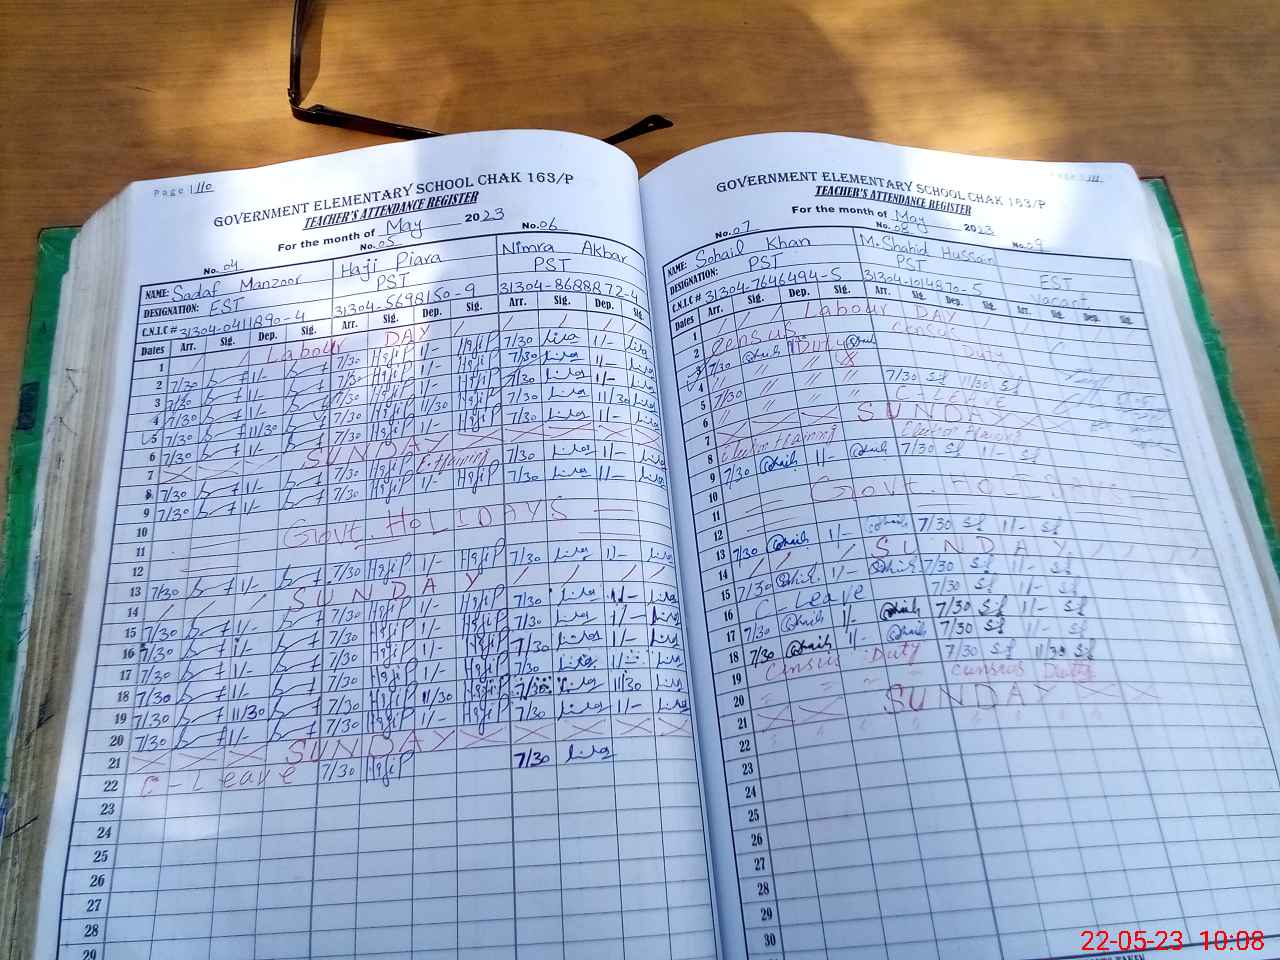 Page 110
GOVERNMENT ELEMENTARY SCHOOL CHAK 163/P
TEACHER'S ATTENDANCE REGISTER
For the month of May 2023
No. 04 No. 05 No. 06
NAME: Sadaf Manzoor Hajji Piara Nimra Akbar
DESIGNATION: EST PST PST
C.N.I.C # 31304-0411890-4 31304-5698150-9 31304-8688872-4
Dates Arr. Sig. Dep. Sig. Arr. Sig. Dep. Sig. Arr. Sig. Dep. Sig.
1 Labour DAY
2 7/30 1/- 7/30 HajiP 1/- HajiP 7/30 1/-
3 7/30 1/- 7/30 HajiP 1/- HajiP 7/30 1/-
4 7/30 1/- 7/30 HajiP 1/- HajiP 7/30 1/-
5 7/30 11/30 7/30 HajiP 11/30 HajiP 7/30 11/30
6 7/30 1/- 7/30 HajiP 1/- HajiP 7/30 1/-
7 SUNDAY
8 7/30 1/- 7/30 HajiP E.training 7/30 1/-
9 7/30 1/- 7/30 HajiP 1/- HajiP 7/30 1/-
10
11 Govt. HOLIDAYS
12
13 7/30 1/- 7/30 HajiP 1/- HajiP 7/30 1/-
14 SUNDAY
15 7/30 1/- 7/30 HajiP 1/- HajiP 7/30 1/-
16 7/30 1/- 7/30 HajiP 1/- HajiP 7/30 1/-
17 7/30 1/- 7/30 HajiP 1/- HajiP 7/30 1/-
18 7/30 1/- 7/30 HajiP 1/- HajiP 7/30 1/-
19 7/30 11/30 7/30 HajiP 11/30 HajiP 7/30 11/30
20 7/30 1/- 7/30 HajiP 1/- HajiP 7/30 1/-
21 SUNDAY
22 C-Leave 7/30 HajiP 7/30
23
24
25
26
27
28
29
Page 111
GOVERNMENT ELEMENTARY SCHOOL CHAK 163/P
TEACHER'S ATTENDANCE REGISTER
For the month of May 2023
No. 07 No. 08 No. 09
NAME: Sohail Khan M. Shahid Hussain
DESIGNATION: PST PST EST
C.N.I.C # 31304-7646494-5 31304-1014870-5 vacant
Dates Arr. Sig. Dep. Sig. Dep. Sig.
1 Labour DAY
2 Census Duty Census Duty
3 7/30 Sohail
4
5 7/30 7/30 Sf 11/30 Sf
6 C-LEAVE
7 SUNDAY
8 Election training Election training
9 7/30 Sohail 1/- Sohail 7/30 Sf 1/- Sf
10
11 Govt. HOLIDAYS
12
13 7/30 Sohail 1/- Sohail 7/30 Sf 1/- Sf
14 SUNDAY
15 7/30 Sohail 1/- Sohail 7/30 Sf 1/- Sf
16 C-Leave 7/30 Sf 1/- Sf
17 7/30 Sohail 1/- Sohail 7/30 Sf 1/- Sf
18 7/30 Sohail 1/- Sohail 7/30 Sf 1/- Sf
19 Census Duty 7/30 Sf 11/30 Sf
20 census Duty
21 SUNDAY
22
23
24
25
26
27
28
29
30
22-05-23 10:08